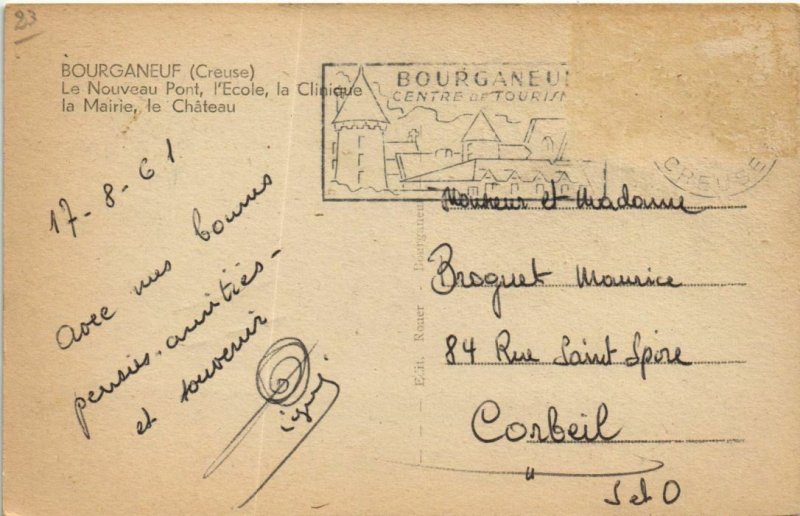 23
BOURGANEUF (Creuse)
Le Nouveau Pont, l'Ecole, la Clinique
la Mairie, le Château
BOURGANEU
CENTRE DE TOURISM
CREUSE
17-8-61
avec mes bonnes
pensées-amitiés-
et souvenir
Edit. Rouer - Bourganeuf
Monsieur et Madame
Broguet Maurice
84 Rue Saint Spire
Corbeil
S et O